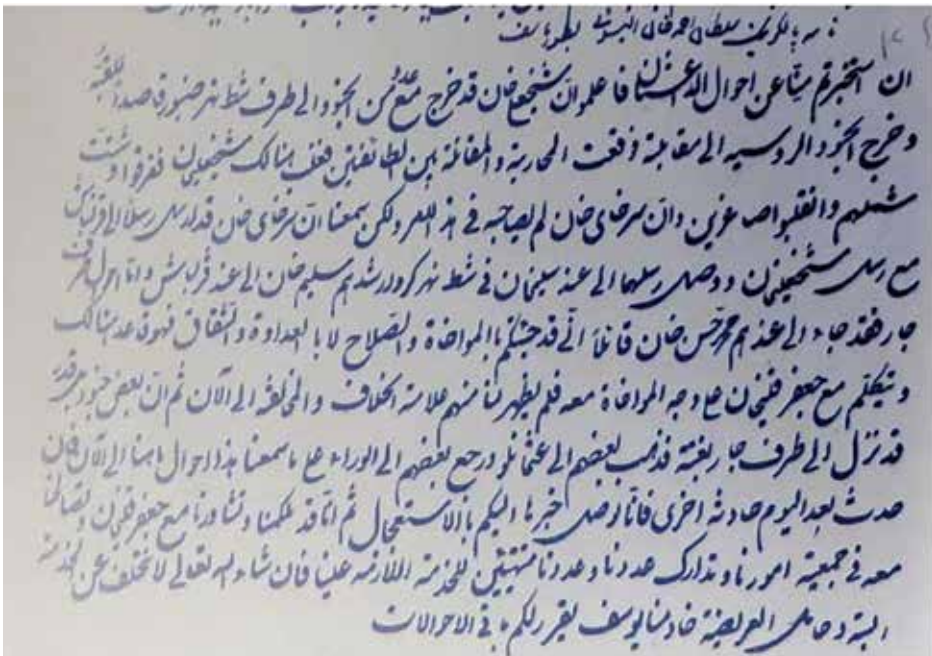 سلطان احمد خان
ان استخبرتم شيئا عن احوال الداغستان فاعلموا ان شيخعلي خان قد خرج مع عدد من الجنود الى طرف شط نهر صنبور قاصدا
وخرج الجنود الروسيه الى مقابلة فوقعت المحاربة والمقاتلة بين الطائفتين هنالك شيخعليخان فتفرقوا وشتت
شملهم وانقلبوا صاغرين وان سرخاى خان لم يصاحبه في هذا السفر ولكن سمعنا ان سرخاى خان قد ارسل رسلا الى قزلباش
مع رسل شيخعليخان ووصل رسلهما الى عند سليمان في شط نهر كر وارشدهم سليم خان الى عند قزلباش واما احوال طرف
جار فقد جاء الى عندهم محمد حسن خان قائلا انى قد جئتكم بالموافقة والصلاح لا بالعداوة والشقاق فهو قاعد هنالك
ويتكلم مع جعفر قليخان على وجه الموافاة معه فلم يظهر لنا منهم علامة الخلاف والمخالفة الى الآن ثم ان بعض جنود
قد نزل الى طرف جار بغتة فذهب بعضهم الى عثمانلو ورجع بعضهم الى الوراء على ما سمعنا هذا احوال الى الآن فان
حدث بعد اليوم حادثة اخرى فانا نوصل خبرها اليكم بالاستعجال ثم انا قد تكلمنا وتشاورنا مع جعفر قليخان
معه في جمعية امورنا وتدارك عددنا وعددنا متهيئين للخدمة اللازمة علينا فان شاء الله تعالى لا نتخلف عن الخدمة
البتة وحامل العريضة خادمنا يوسف يقرر لكم باقى الاحوالات